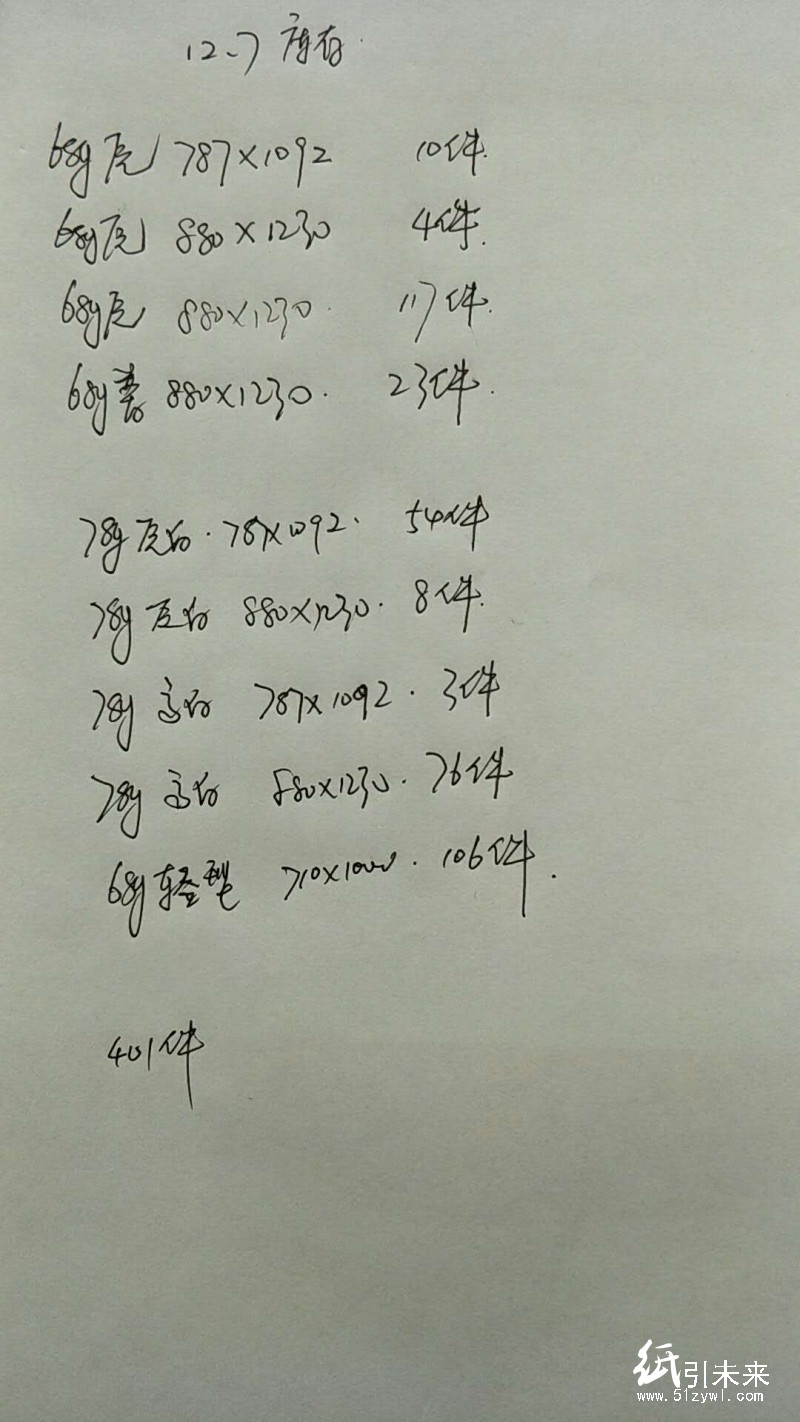 12、7 库存.
68g 787×1092 10件.
68g 880×1230 4件.
68g 880×1230. 117件.
68g 880×1230. 23件.
78g 白. 787×1092. 54件
78g 白 880×1230. 8件.
78g 高白 787×1092. 3件
78g 高白 880×1230. 76件
68g轻型 710×1000. 106件.
401件
纸引未来
www.51zywl.com